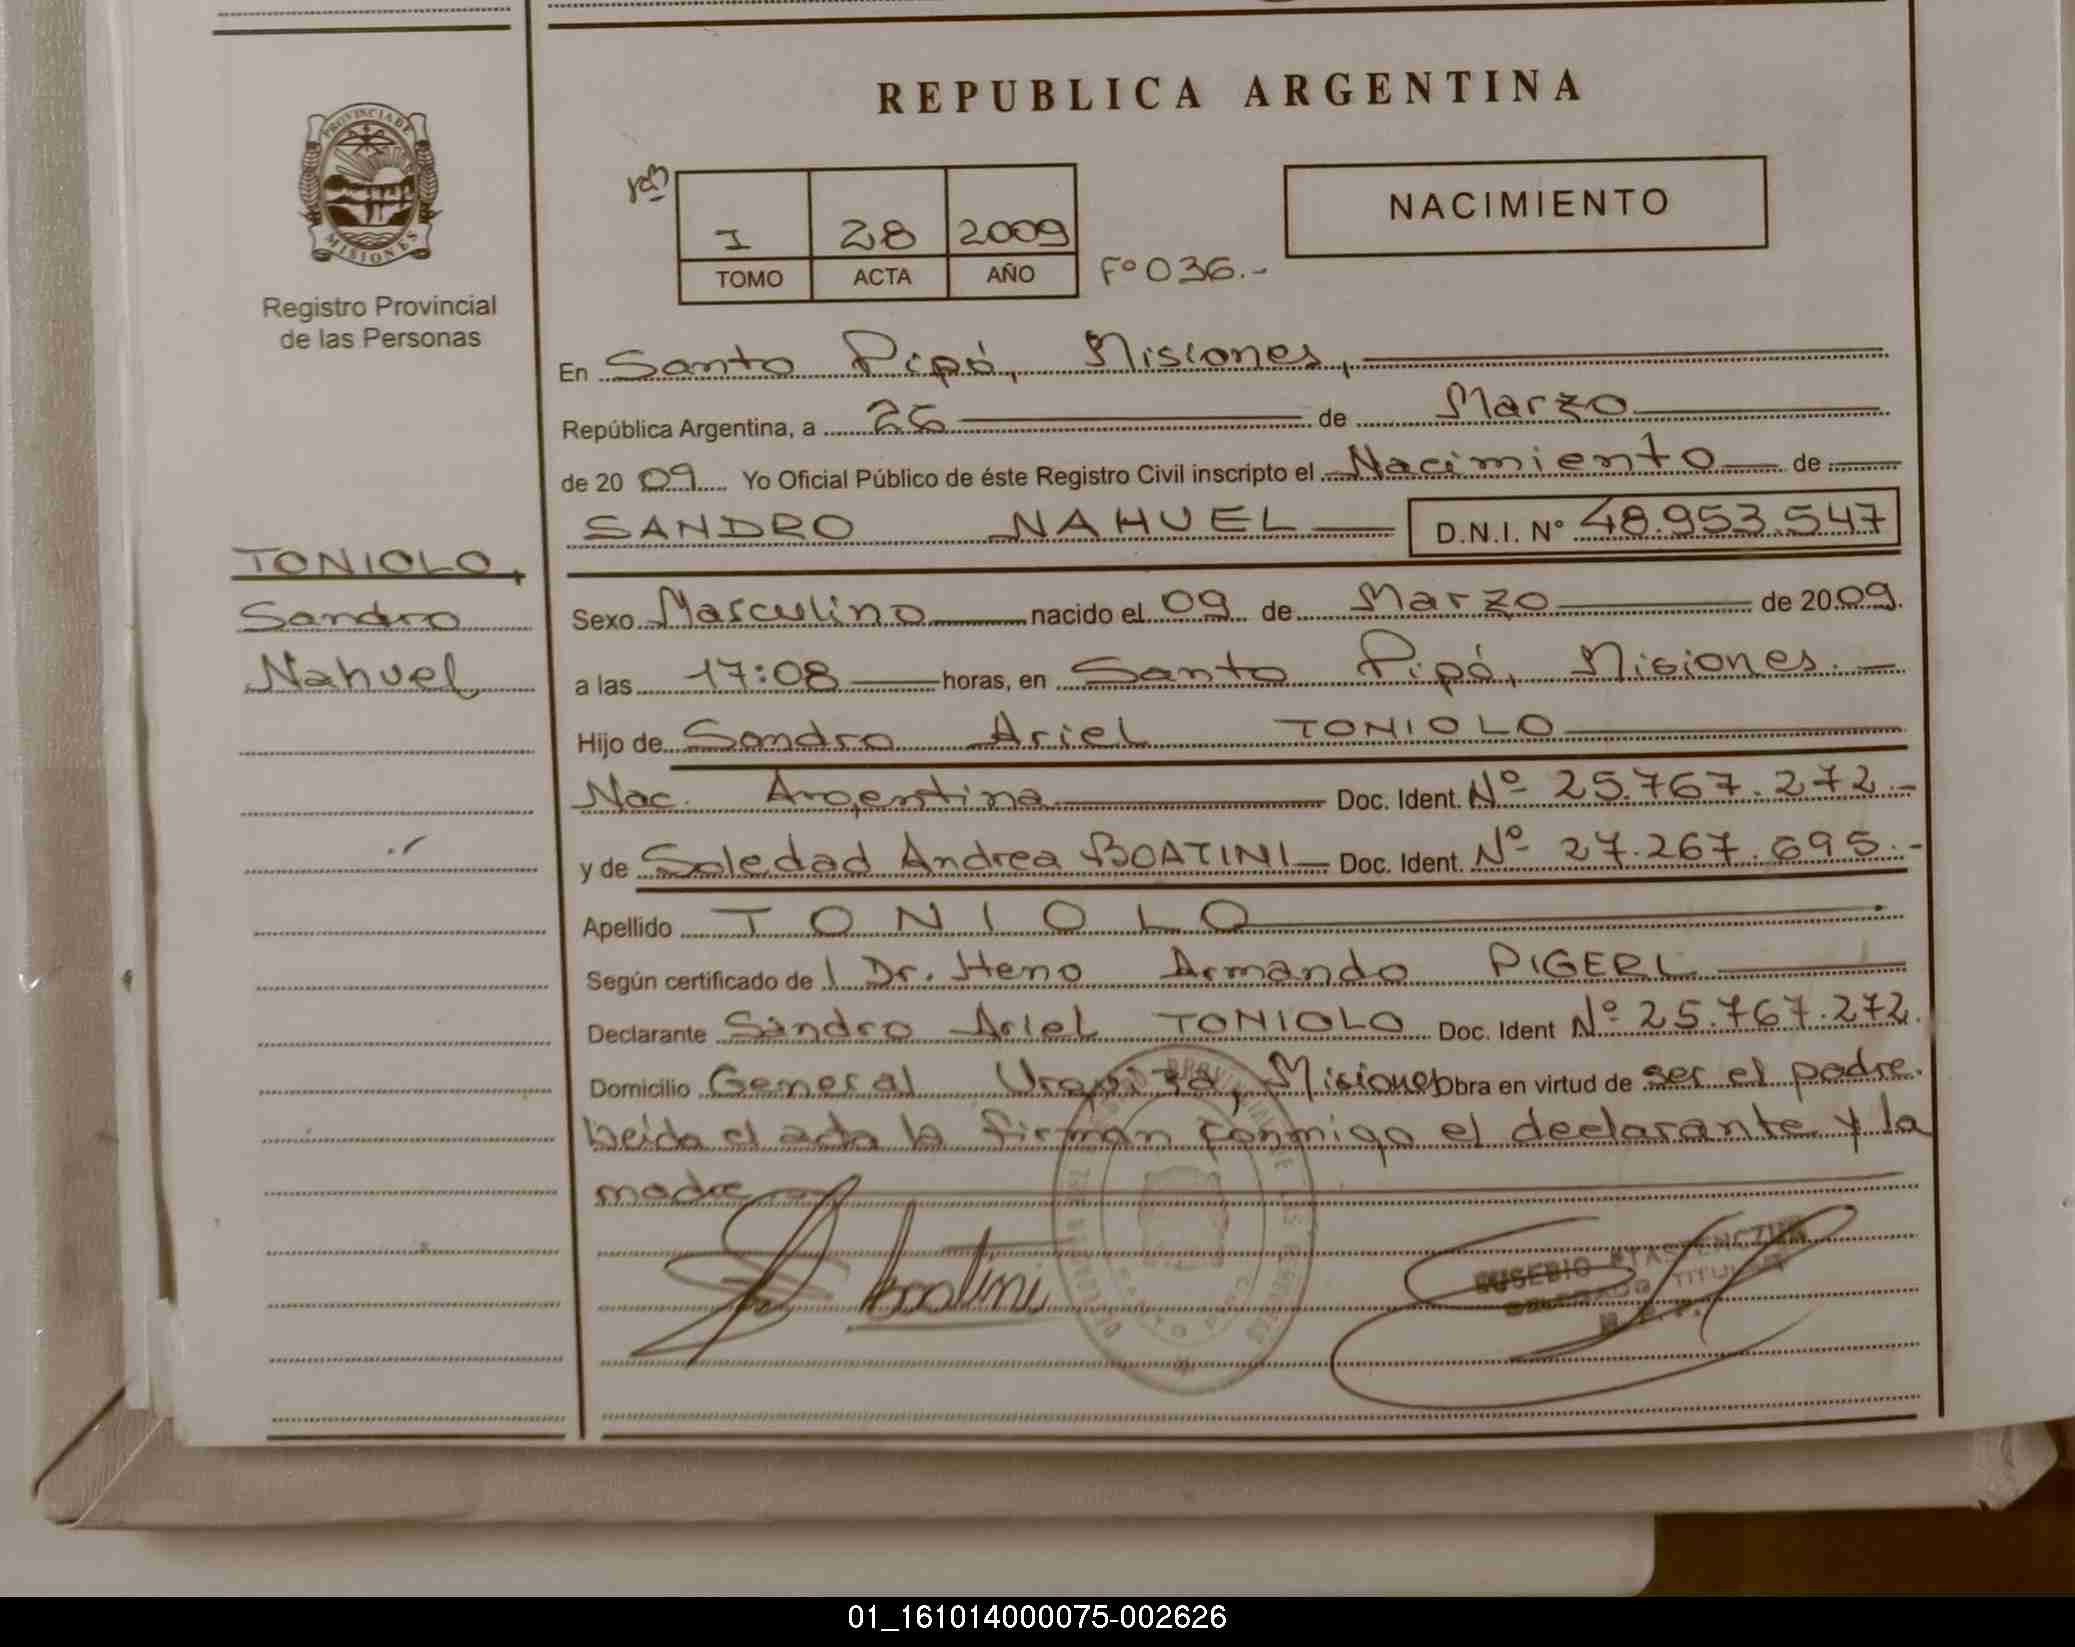 REPUBLICA ARGENTINA
PROVINCIA DE
MISIONES
Registro Provincial
de las Personas
I 28 2009
TOMO ACTA AÑO
Fº 036.-
NACIMIENTO
En Santo Pipó, Misiones,
República Argentina, a 26 de Marzo
de 20 09 Yo Oficial Público de éste Registro Civil inscripto el Nacimiento de
SANDRO NAHUEL D.N.I. Nº 48.953.547
TONIOLO,
Sandro
Nahuel
Sexo Masculino nacido el 09 de Marzo de 20 09.
a las 17:08 horas, en Santo Pipó, Misiones.
Hijo de Sandro Ariel TONIOLO
Nac. Argentina Doc. Ident. Nº 25.767.272.-
y de Soledad Andrea BOATINI Doc. Ident. Nº 27.267.695.-
Apellido TONIOLO
Según certificado de l Dr. Heno Armando PIGERL
Declarante Sandro Ariel TONIOLO Doc. Ident Nº 25.767.272.
Domicilio General Urquiza, Misiones Obra en virtud de ser el padre.
Leida el acta la firman conmigo el declarante y la
madre
Boatini
EUSEBIO
DELEGADO TITULAR
01_161014000075-002626